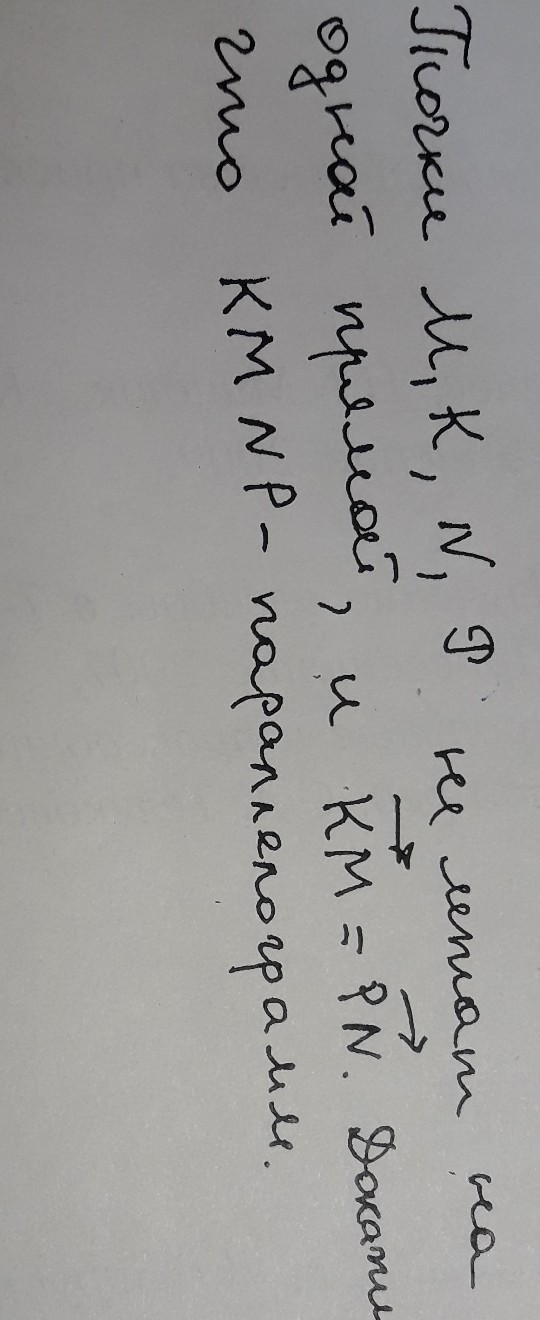 Точки M, K, N, P не лежат на
одной прямой, и KM = PN. Докажи
что KMNP - параллелограмм.